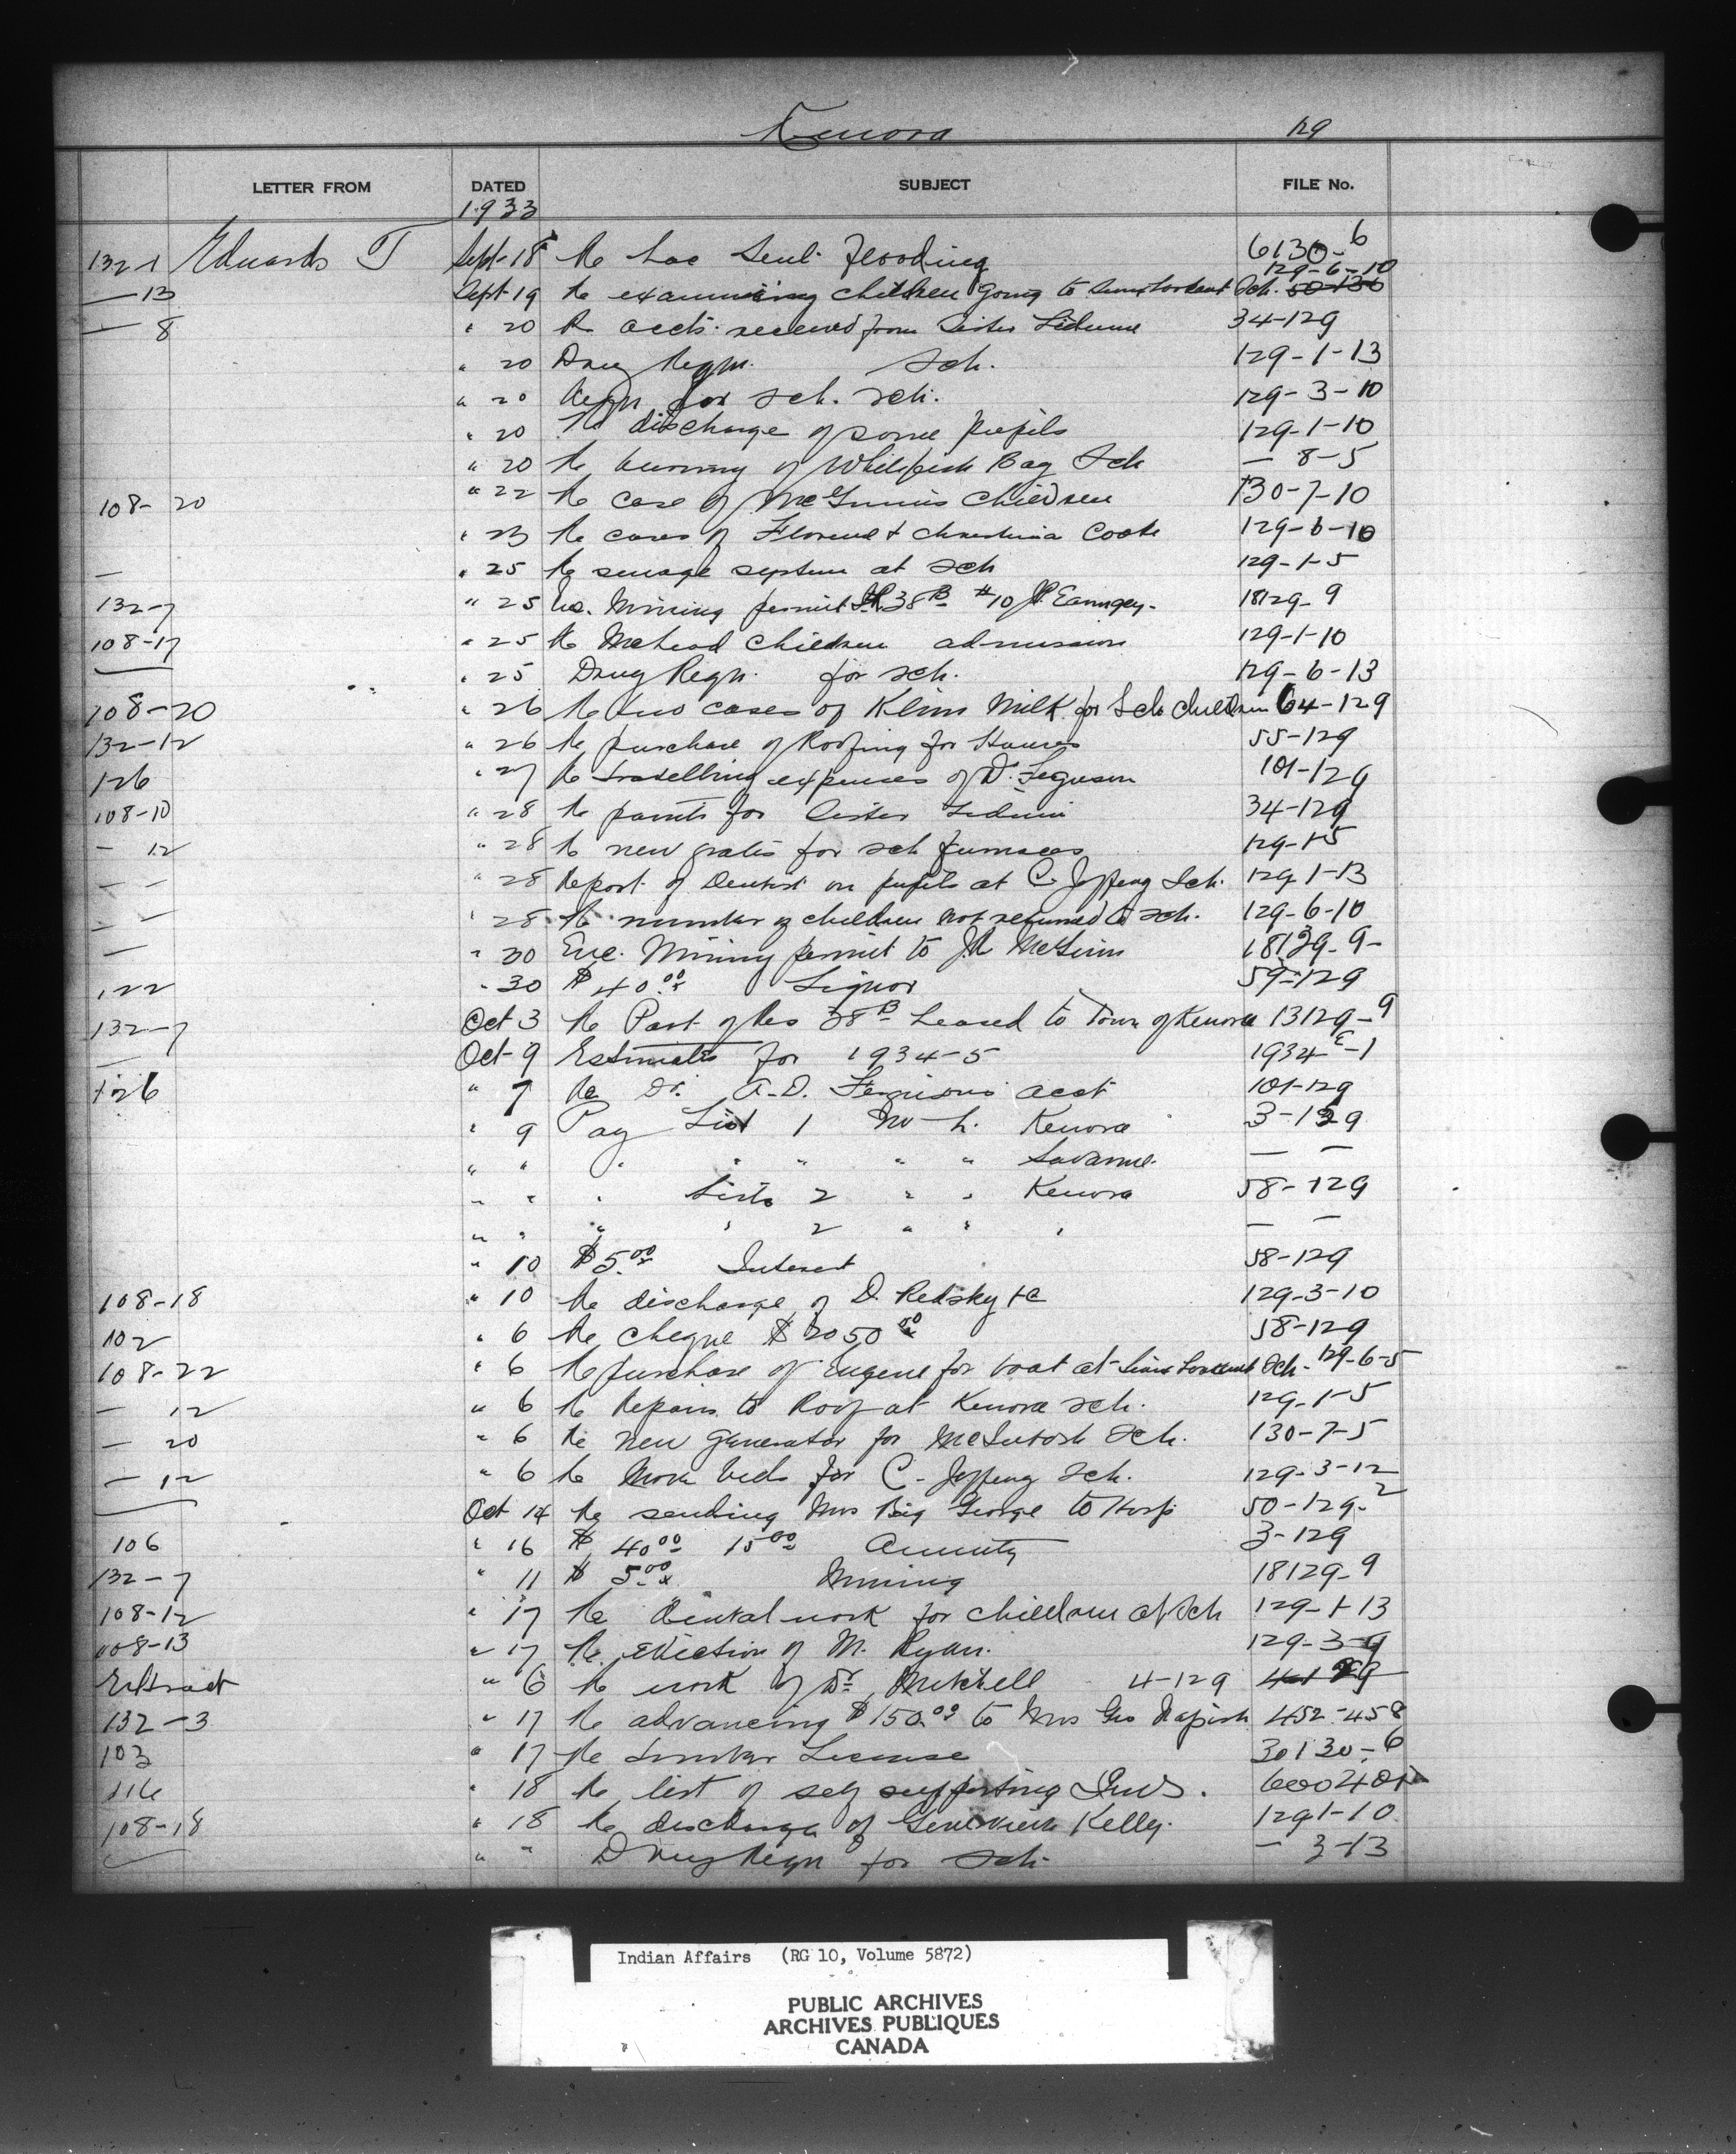 Kenora 129
LETTER FROM DATED SUBJECT FILE No.
1933
132-1 Edwards T Sept-18 Re Lac Seul Flooding 6130-6
129-6-10
—13 Sept-19 Re examining children going to Sch. 50-130
— 8 " 20 Re accts. received from Sister 34-129
" 20 Drug Reqn. Sch. 129-1-13
" 20 Reqn for sch. 129-3-10
" 20 Re discharge of some pupils 129-1-10
" 20 Re burning of Whitefish Bay Sch — 8-5
108-20 " 22 Re case of McGinnis Children 130-7-10
" 23 Re cases of Florence & Christina Cook 129-6-10
— " 25 Re sewage system at Sch 129-1-5
132-7 " 25 Mining permit 38B #10 18129-9
108-17 " 25 Re McLeod Children admission 129-1-10
" 25 Drug Reqn. for sch. 129-6-13
108-20 " 26 Re two cases of Klim Milk for Sch children 64-129
132-12 " 26 Re purchase of Roofing for Houses 55-129
126 " 27 Re travelling expenses of Dr. Ferguson 101-129
108-10 " 28 Re for Sister 34-129
— 12 " 28 Re new grates for sch furnaces 129-1-5
— — " 28 Report of Dentist on pupils at C. Jeffrey Sch. 129-1-13
— — " 28 Re number of children not returned to sch. 129-6-10
— " 30 Enc. Mining permit to McGinn 18129-9-
122 " 30 $40.00 Liquor 59-129
132-7 Oct 3 Re Part of Res 38B Leased to Town of Kenora 13129-9
— Oct-9 Estimates for 1934-5 1934E-1
126 " 7 Re Dr. A.D. Ferguson's acct 101-129
" 9 Pay List 1 Kenora 3-129
" " " " " " " Savanne — —
" " " Lists 2 " " Kenora 58-129
" " " " 2 " " " — —
" 10 $5.00 Interest 58-129
108-18 " 10 Re discharge of D. Redsky &c 129-3-10
102 " 6 Re cheque $2050.00 58-129
108-22 " 6 Re purchase of Engine for boat at Sch. 129-6-5
— 12 " 6 Re Repairs to Roof at Kenora sch. 129-1-5
— 20 " 6 Re new generator for McIntosh Sch. 130-7-5
— 12 " 6 Re more beds for C. Jeffrey Sch. 129-3-12
— Oct 14 Re sending Mrs Big George to Hosp 50-129-2
106 " 16 $40.00 15.00 Annuity 3-129
132-7 " 11 $5.00 Mining 18129-9
108-12 " 17 Re dental work for children at Sch 129-1-13
108-13 " 17 Re eviction of M. Ryan. 129-3-9
Extract " 6 Re work of Dr. Mitchell 4-129 4-129
132-3 " 17 Re advancing $150.00 to Mrs Geo 452-458
103 " 17 Re Timber License 30130-6
116 " 18 Re list of self supporting Inds.
108-18 " 18 Re discharge of Genevieve Kelly. 129-1-10
" " Drug Reqn for Sch. — 3-13
Indian Affairs (RG 10, Volume 5872)
PUBLIC ARCHIVES
ARCHIVES PUBLIQUES
CANADA